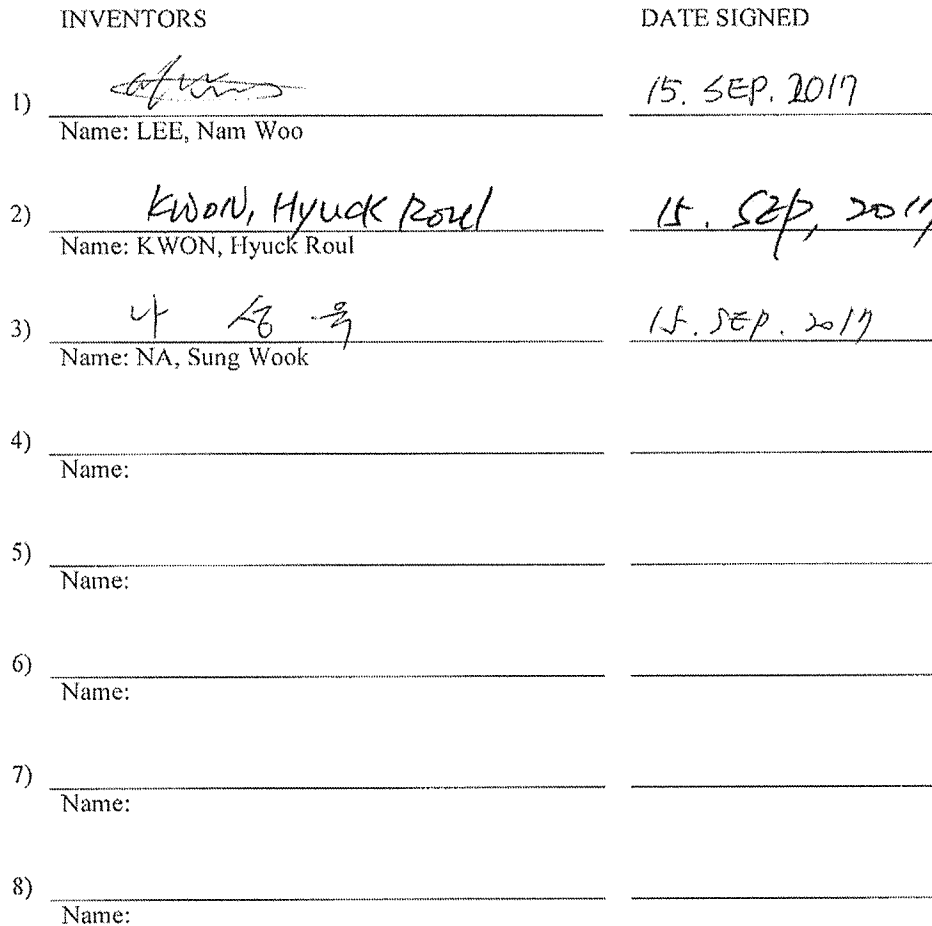 INVENTORS DATE SIGNED
1) 15. SEP. 2017
Name: LEE, Nam Woo
2) KWON, Hyuck Roul 15. SEP, 2017
Name: KWON, Hyuck Roul
3) 나 성욱 15. SEP. 2017
Name: NA, Sung Wook
4)
Name:
5)
Name:
6)
Name:
7)
Name:
8)
Name: